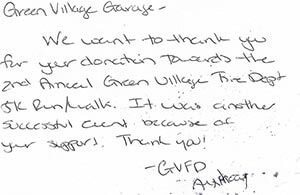 Green Village Garage -
We want to thank you
for your donation towards the
2nd Annual Green Village Fire Dept
5K Run/walk. It was another
successful event because of
your support. Thank you!
- GVFD
Anthony